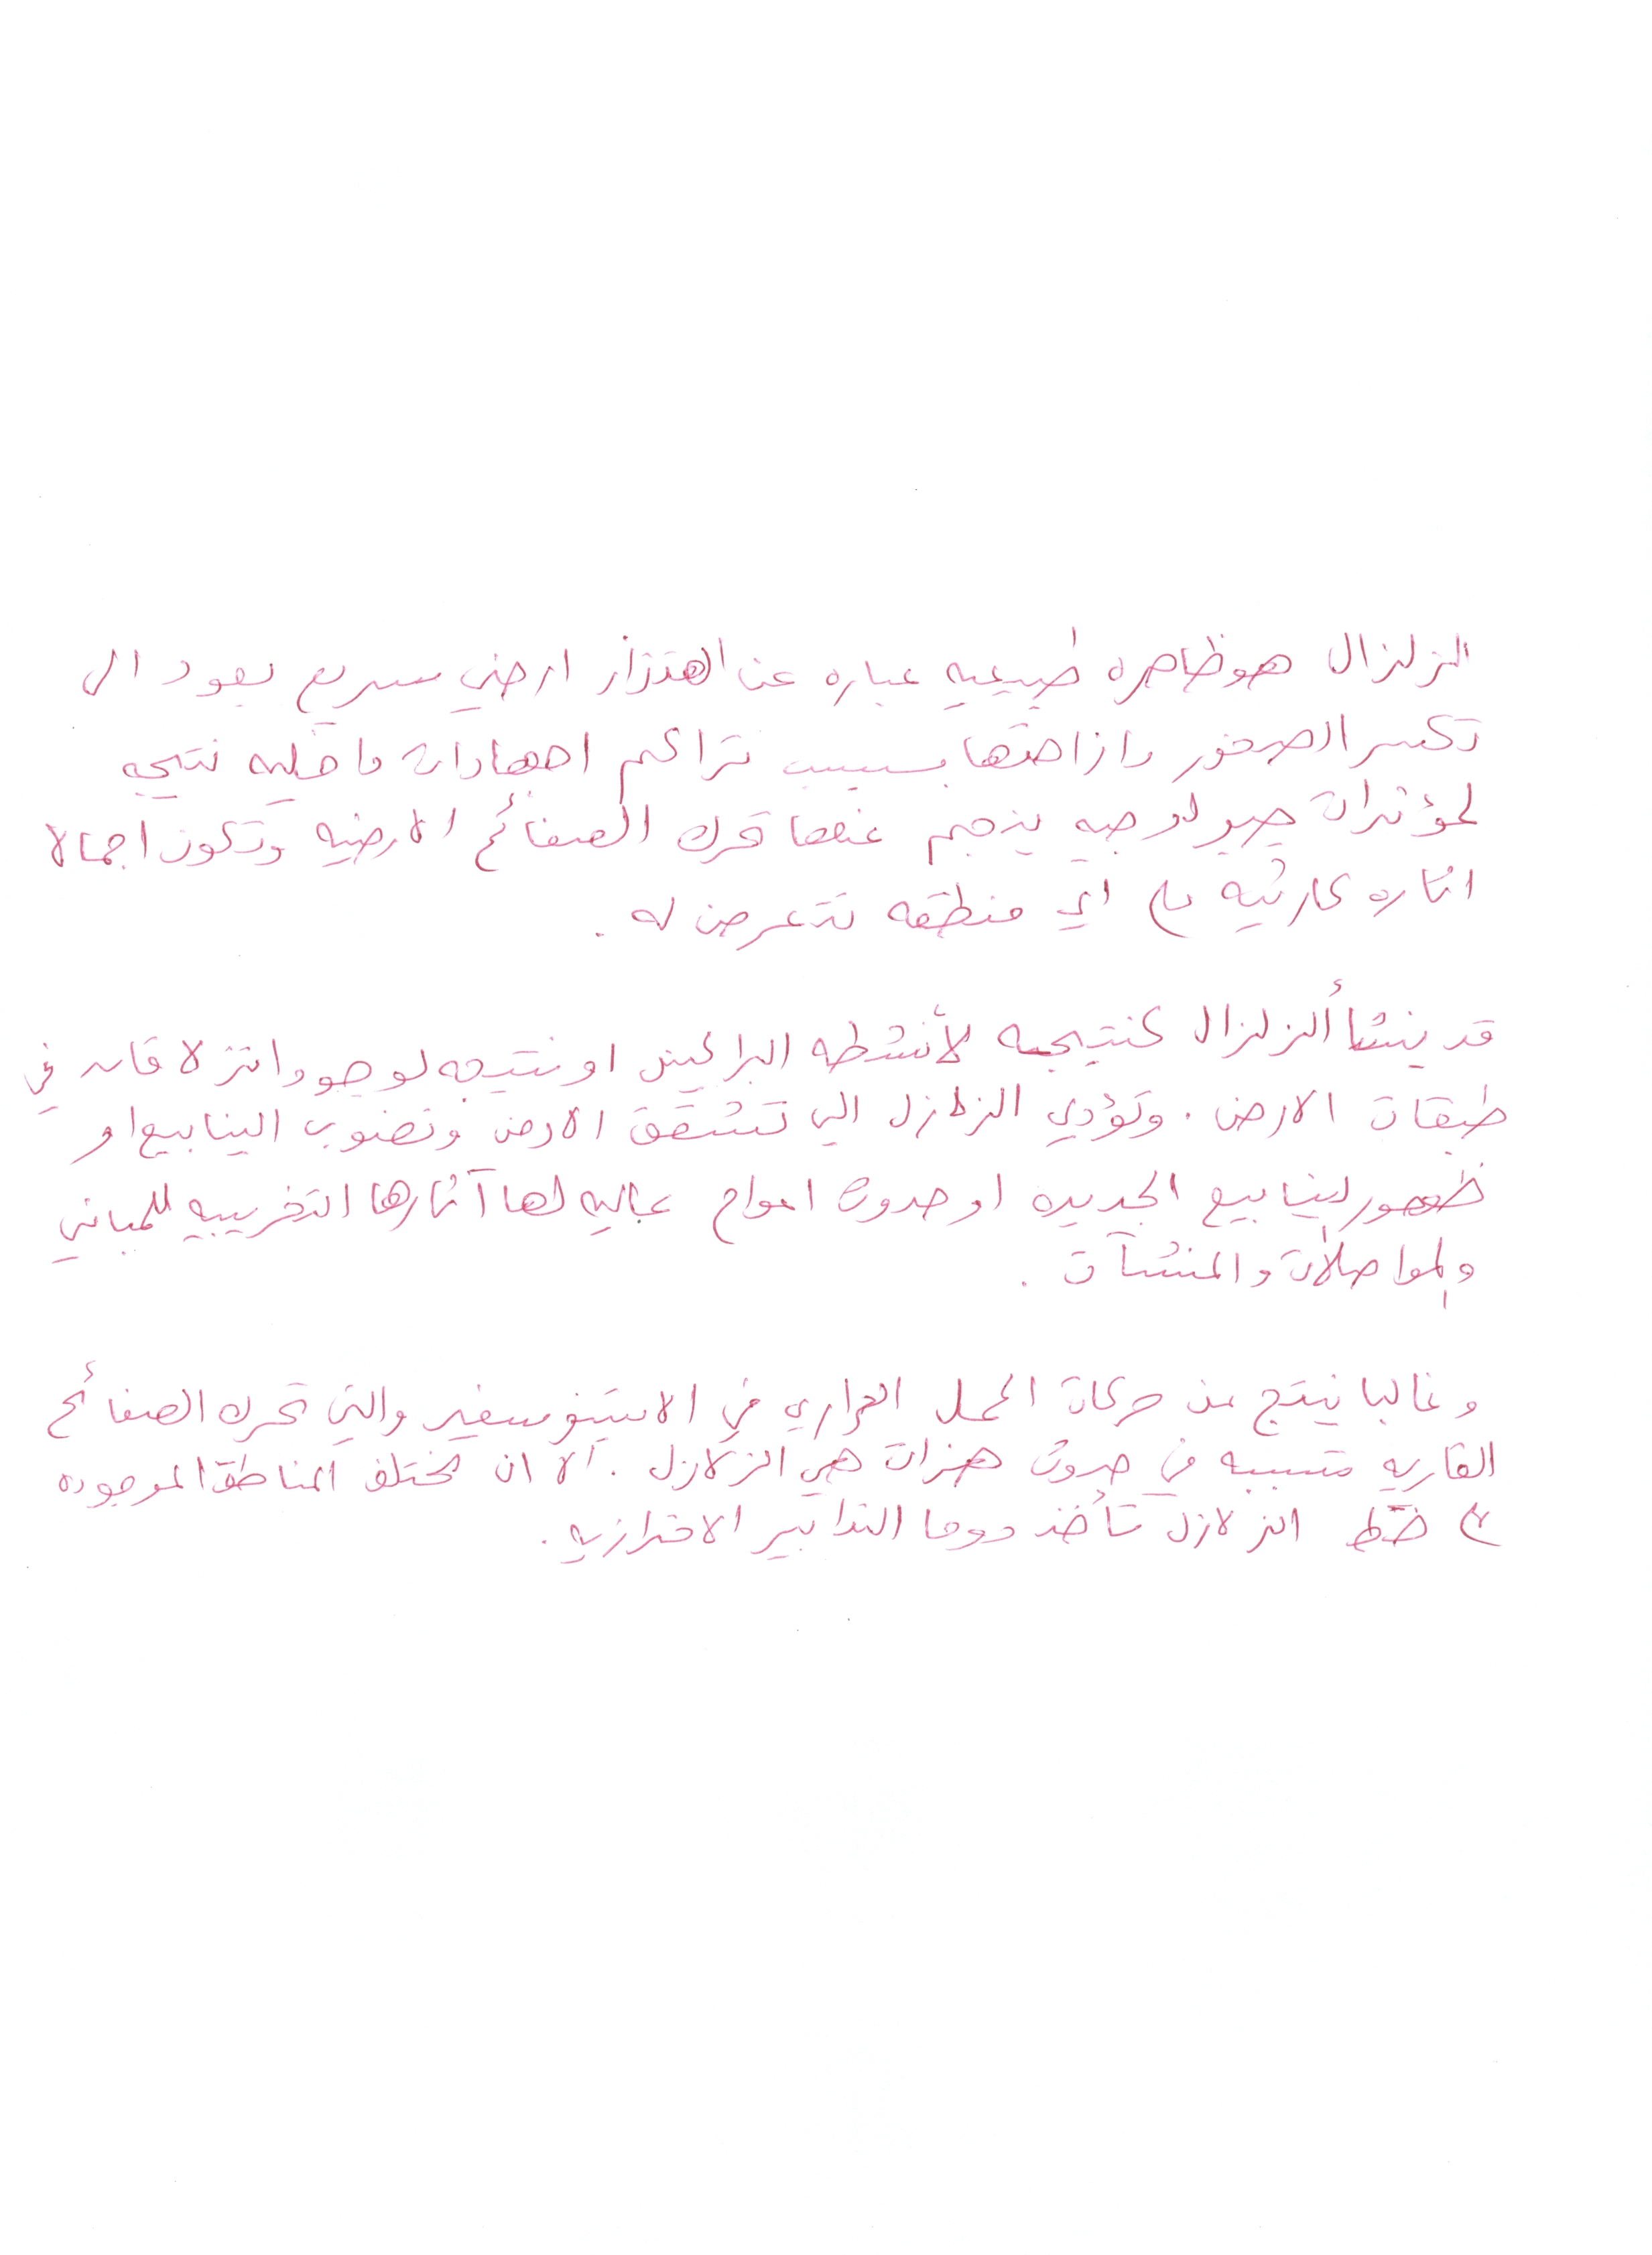 الزلزال هو ظاهره طبيعيه عباره عن اهتزاز ارضي سريع يعود الى
تكسر الصخور وازاحتها بسبب تراكم اجهادات داخليه نتيجه
لمؤثرات جيولوجيه ينجم عنها تحرك الصفائح الارضيه وتكون اجمالا
اثاره كارثيه على اي منطقه تتعرض له .
قد ينشأ الزلزال كنتيجه لأنشطه البراكين او نتيجه لوجود انزلاقات في
طبقات الارض . وتؤدي الزلازل الى تشقق الارض ونضوب الينابيع او
ظهور الينابيع الجديده او حدوث امواج عاليه لها آثارها التخريبيه للمباني
والمواصلات والمنشآت .
وغالبا ينتج عن حركات الحمل الحراري في الاستينوسفير والتي تحرك الصفائح
القاريه متسببه في حدوث هزات هي الزلازل . الا ان مختلف المناطق الموجوده
على خط الزلازل تأخذ دوما التدابير الاحترازيه .